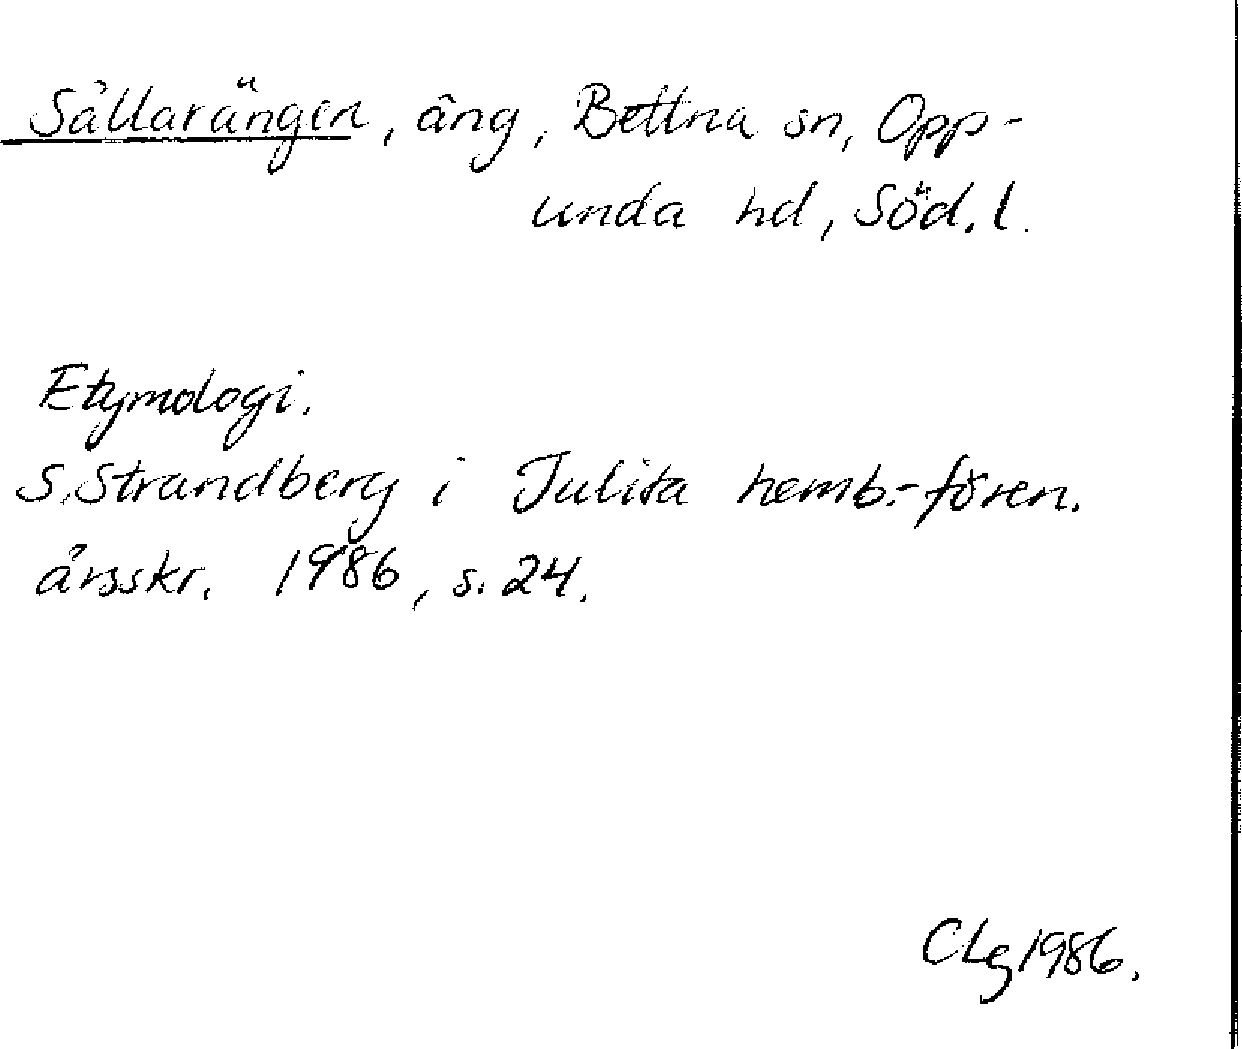 Sållarängen, äng, Bettna sn, Opp-
unda hd, Söd.l.
Etymologi.
S. Strandberg i Julita hemb.-fören.
årsskr. 1986, s. 24.
CLg 1986.